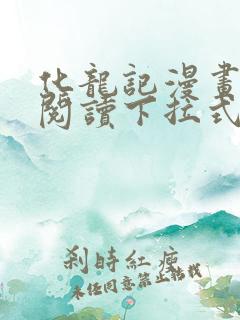 化龍記漫畫
閱讀下拉式
剎時紅塵
未經同意禁止轉載